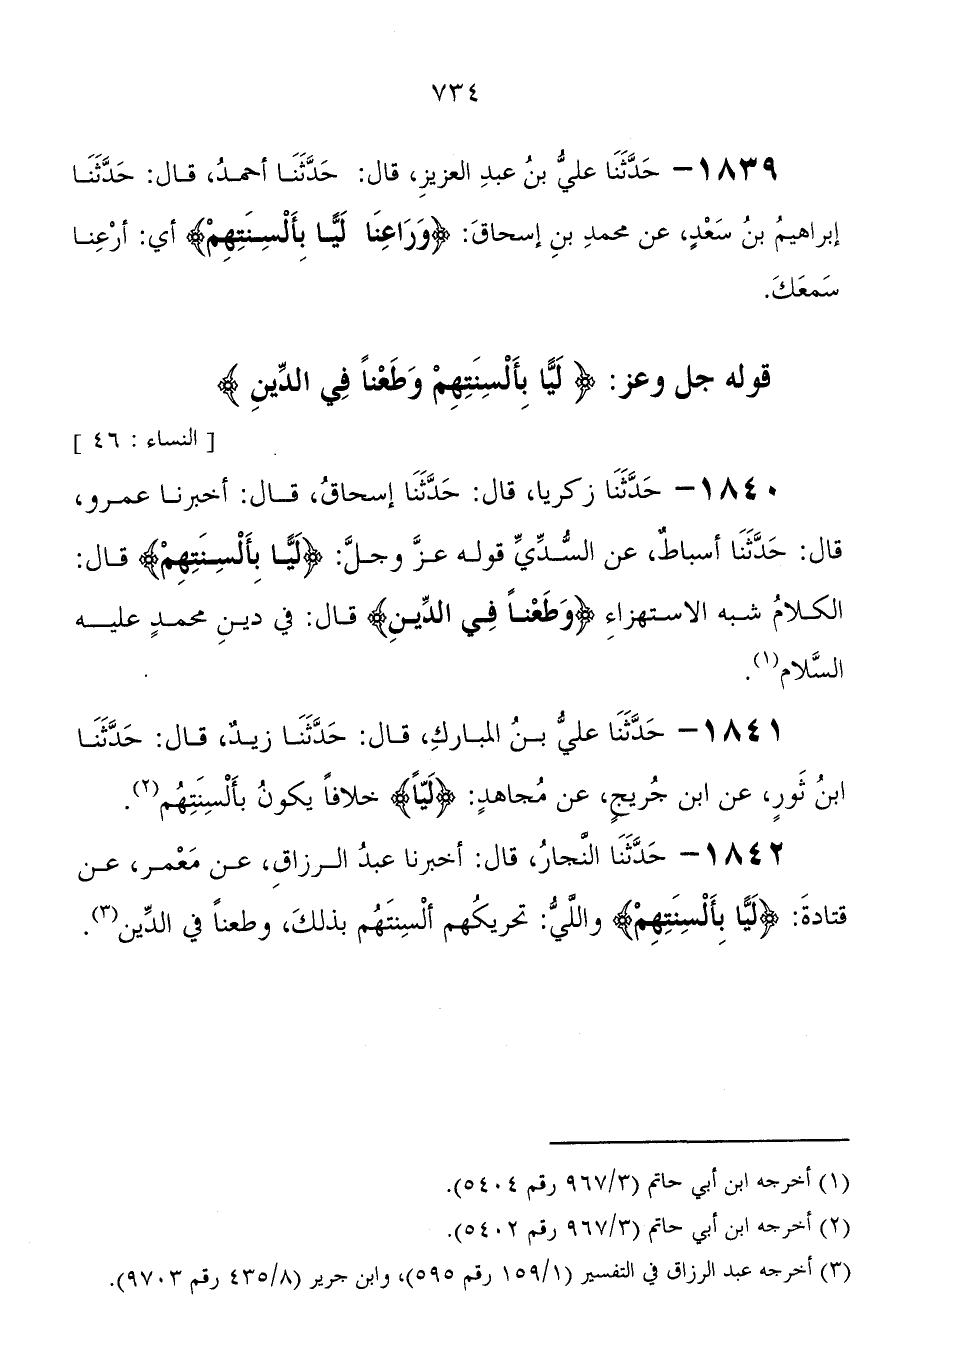 ٧٣٤
١٨٣٩- حَدَّثَنَا عليُّ بنُ عبدِ العزيزِ، قال: حَدَّثَنَا أحمدُ، قال: حَدَّثَنَا
إبراهيمُ بنُ سَعْدٍ، عن محمدِ بنِ إسحاقَ: ﴿وَرَاعِنَا لَيًّا بِأَلْسِنَتِهِمْ﴾ أي: أرْعِنا
سَمعَكَ.
قوله جل وعز: ﴿ لَيًّا بِأَلْسِنَتِهِمْ وَطَعْناً فِي الدِّينِ ﴾
[ النساء : ٤٦ ]
١٨٤٠- حَدَّثَنَا زكريا، قال: حَدَّثَنَا إسحاقُ، قال: أخبرنا عمرو،
قال: حَدَّثَنَا أسباطٌ، عن السُّدِّيِّ قوله عزَّ وجلَّ: ﴿لَيًّا بِأَلْسِنَتِهِمْ﴾ قال:
الكلامُ شبه الاستهزاءِ ﴿وَطَعْناً فِي الدِّينِ﴾ قال: في دينِ محمدٍ عليه
السَّلام(١).
١٨٤١- حَدَّثَنَا عليُّ بنُ المباركِ، قال: حَدَّثَنَا زيدٌ، قال: حَدَّثَنَا
ابنُ ثَورٍ، عن ابن جُريجٍ، عن مُجاهدٍ: ﴿لَيّاً﴾ خلافاً يكونُ بأَلْسِنَتِهُم(٢).
١٨٤٢- حَدَّثَنَا النَّجارُ، قال: أخبرنا عبدُ الرزاقِ، عن مَعْمر، عن
قتادةَ: ﴿لَيًّا بِأَلْسِنَتِهِمْ﴾ واللَّيُّ: تحريكُهم ألْسِنتَهُم بذلكَ، وطعناً في الدِّين(٣).
(١) أخرجه ابن أبي حاتم (٩٦٧/٣ رقم ٥٤٠٤).
(٢) أخرجه ابن أبي حاتم (٩٦٧/٣ رقم ٥٤٠٢).
(٣) أخرجه عبد الرزاق في التفسير (١٥٩/١ رقم ٥٩٥)، وابن جرير (٤٣٥/٨ رقم ٩٧٠٣).